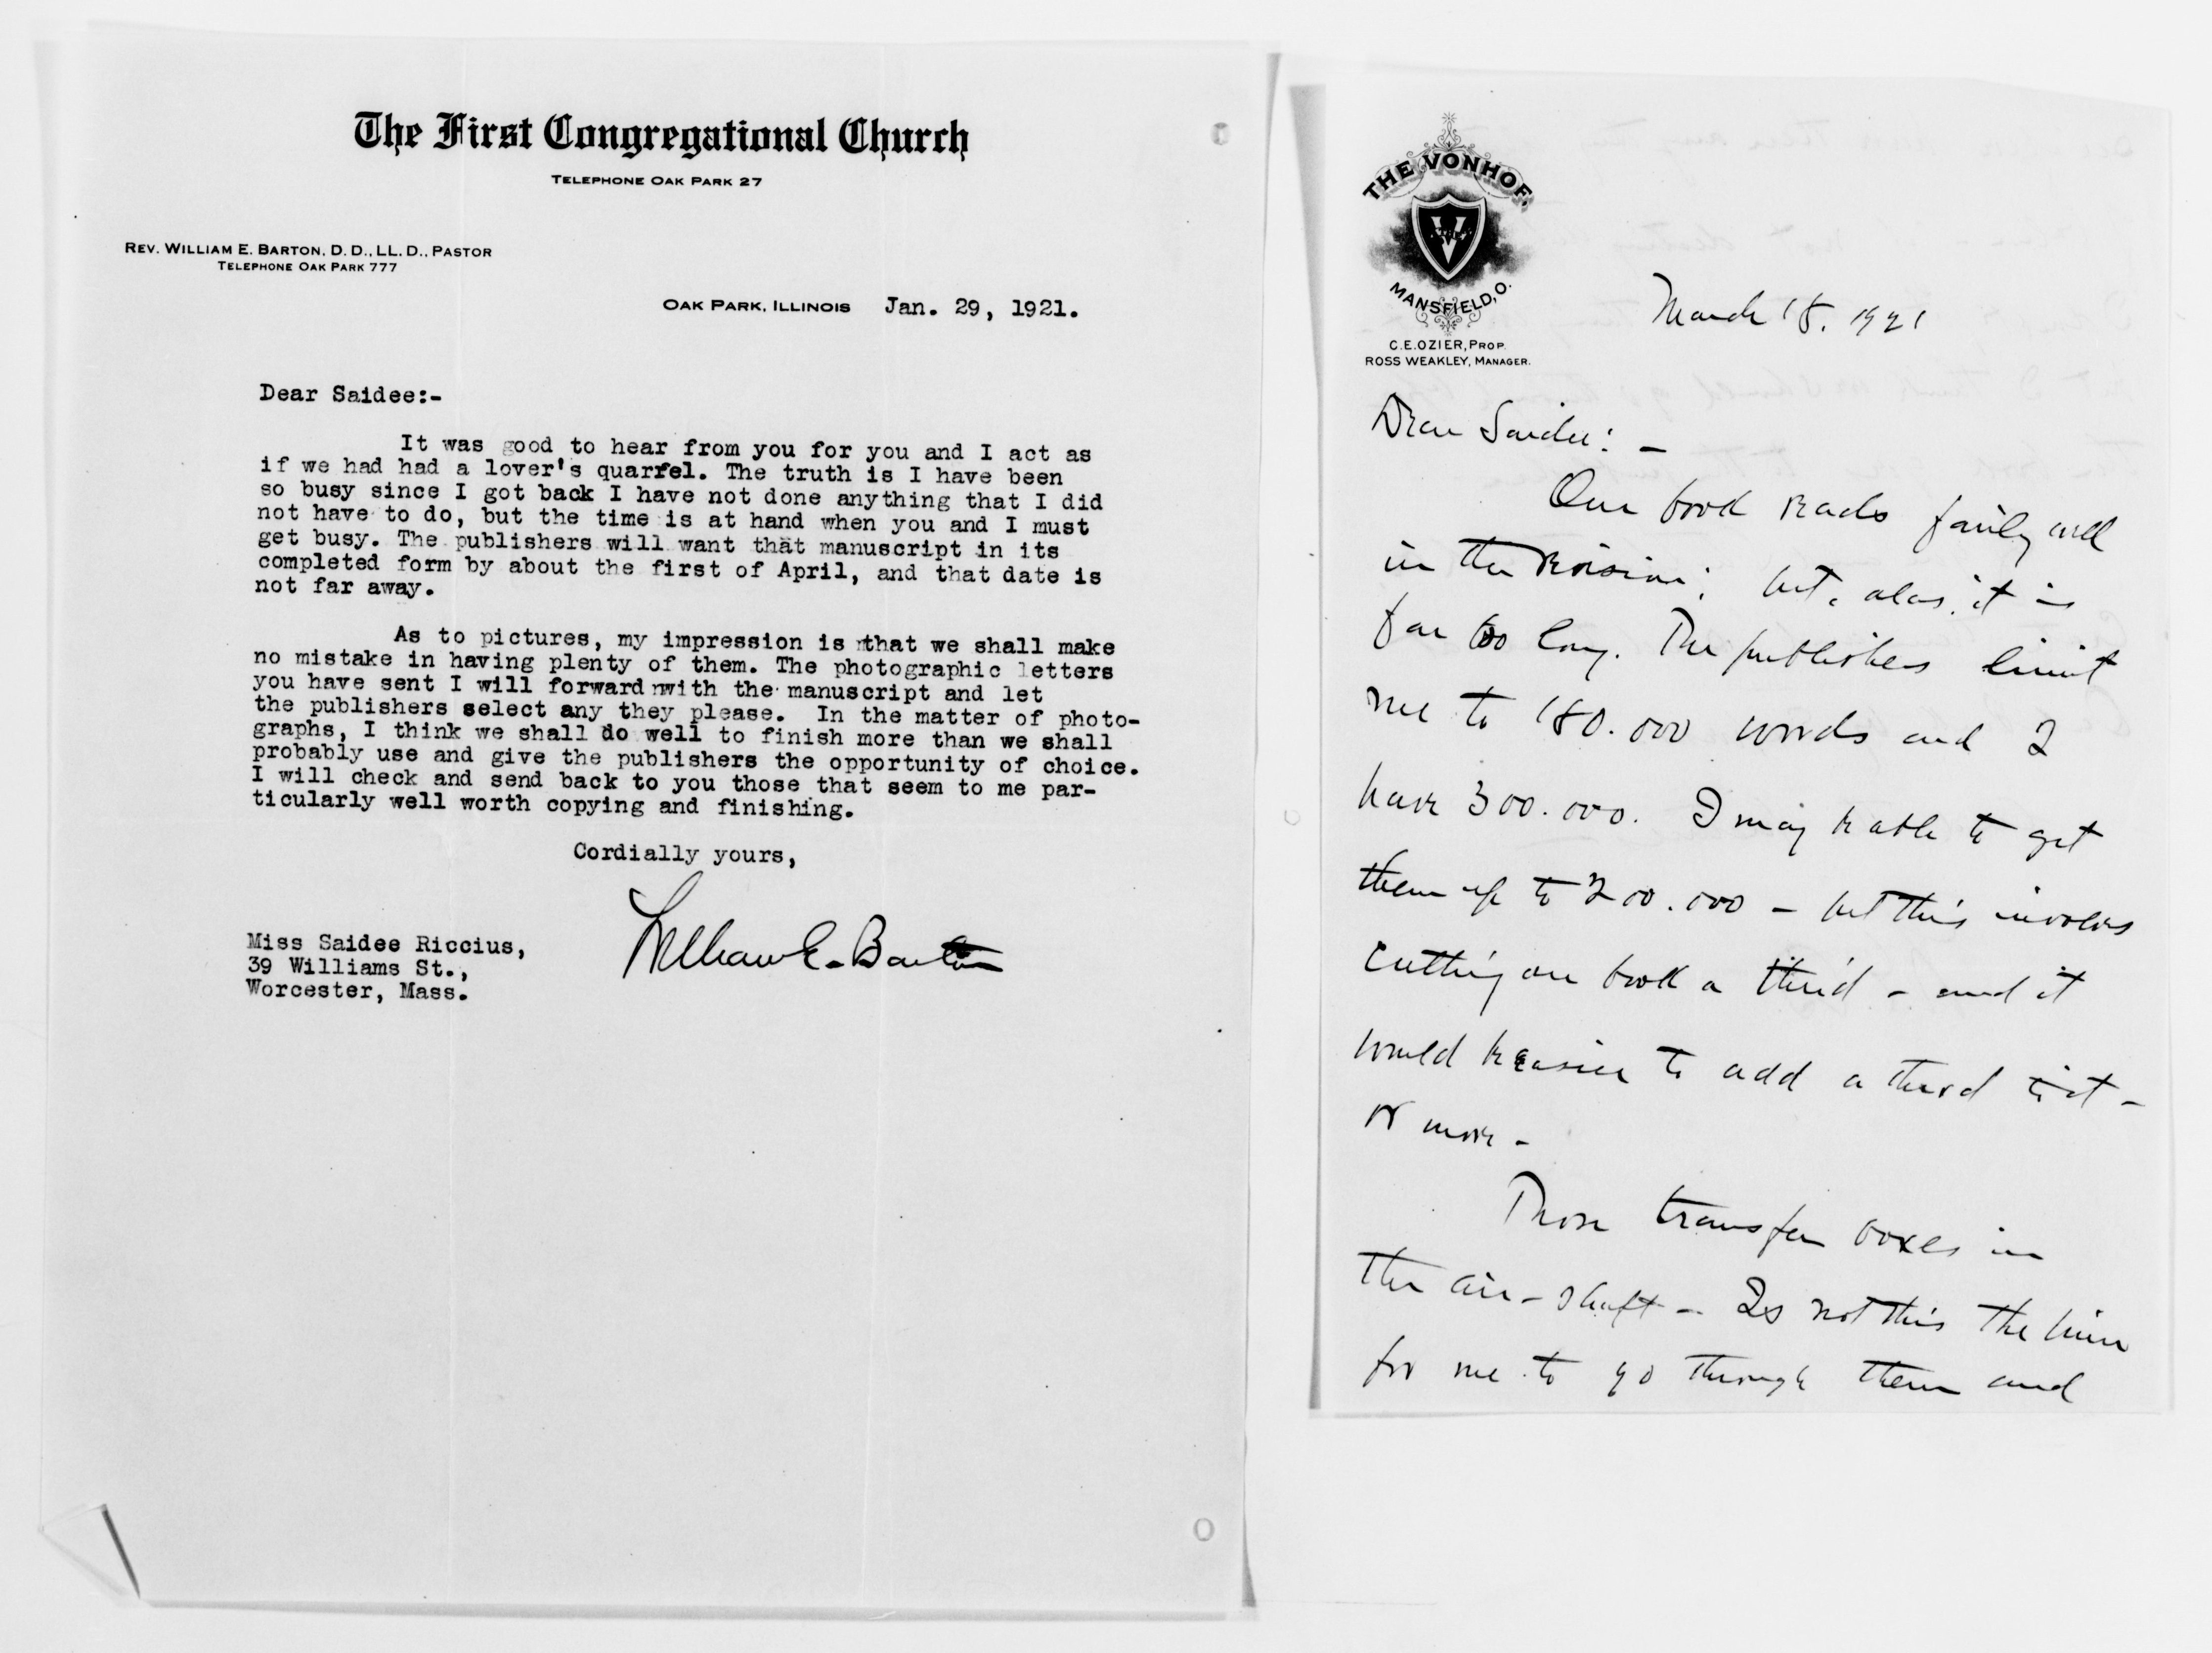 The First Congregational Church
TELEPHONE OAK PARK 27
REV. WILLIAM E. BARTON, D. D., LL. D., PASTOR
TELEPHONE OAK PARK 777
OAK PARK, ILLINOIS Jan. 29, 1921.
Dear Saidee:-
It was good to hear from you for you and I act as
if we had had a lover's quarrel. The truth is I have been
so busy since I got back I have not done anything that I did
not have to do, but the time is at hand when you and I must
get busy. The publishers will want that manuscript in its
completed form by about the first of April, and that date is
not far away.
As to pictures, my impression is that we shall make
no mistake in having plenty of them. The photographic letters
you have sent I will forward with the manuscript and let
the publishers select any they please. In the matter of photo-
graphs, I think we shall do well to finish more than we shall
probably use and give the publishers the opportunity of choice.
I will check and send back to you those that seem to me par-
ticularly well worth copying and finishing.
Cordially yours,
William E. Barton
Miss Saidee Riccius,
39 Williams St.,
Worcester, Mass.
THE VONHOF,
V
MANSFIELD, O.
C.E.OZIER, PROP.
ROSS WEAKLEY, MANAGER.
March 18. 1921
Dear Saidee: -
Our book reads fairly well
in the revision; but, alas, it is
far too long. The publishers limit
me to 180.000 words and I
have 300.000. I may be able to get
them up to 200.000 - but this involves
cutting our book a third - and it
would be easier to add a third to it -
or more -
Those transfer boxes in
the air-shaft - Is not this the time
for me to go through them and